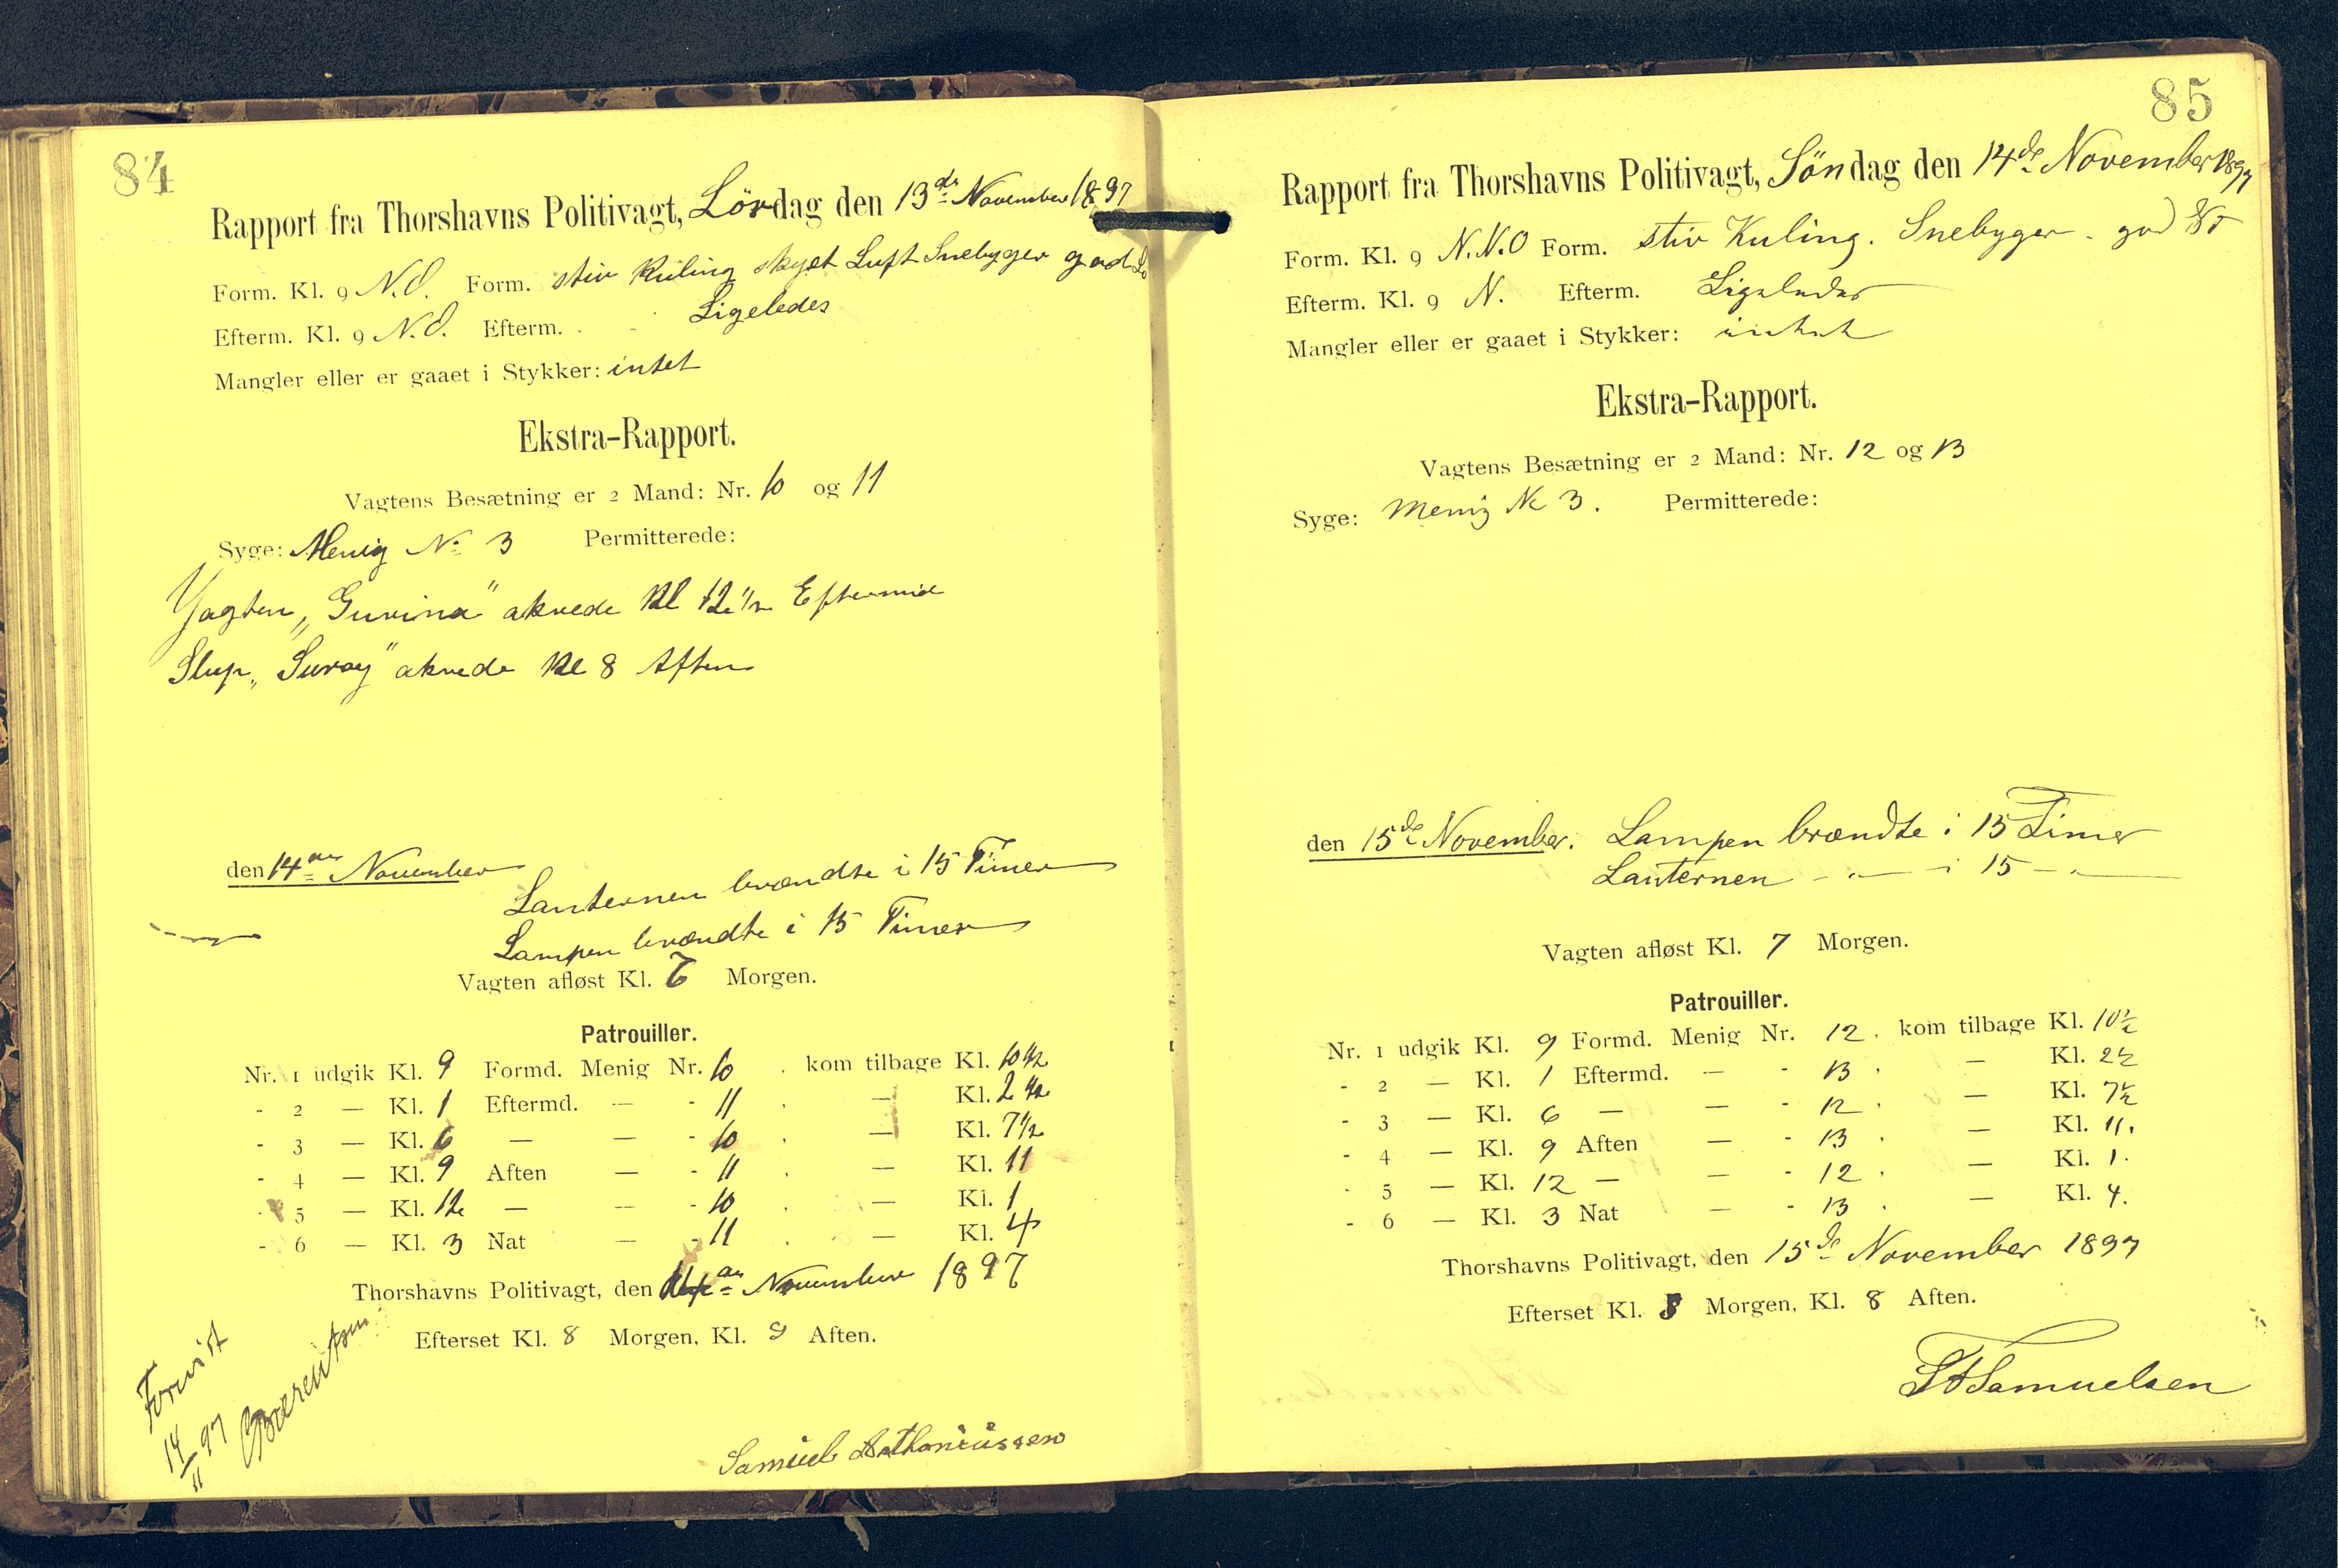 84
Rapport fra Thorshavns Politivagt, Lördag den 13de November 1897
Form. Kl. 9 N.O. Form. stiv Kuling skyet Luft Snebyger god
Efterm. Kl. 9 N.O. Efterm. Ligeledes
Mangler eller er gaaet i Stykker: intet
Ekstra-Rapport.
Vagtens Besætning er 2 Mand: Nr. 10 og 11
Syge: Menig No 3 Permitterede:
Jagten "Gurina" akrede Kl 12 1/2 Eftermid
Slup "Suroy" akrede Kl 8 Aften
den 14de November
Lanternen brændte i 15 Timer
Lampen brændte i 15 Timer
Vagten afløst Kl. 7 Morgen.
Patrouiller.
Nr. 1 udgik Kl. 9 Formd. Menig Nr. 10 . kom tilbage Kl. 10 1/2
- 2 — Kl. 1 Eftermd. — - 11 . — Kl. 2 1/2
- 3 — Kl. 6 — — - 10 . — Kl. 7 1/2
- 4 — Kl. 9 Aften — - 11 . — Kl. 11
- 5 — Kl. 12 — — - 10 . — Kl. 1
- 6 — Kl. 3 Nat — - 11 . — Kl. 4
Thorshavns Politivagt, den 14de November 1897
Efterset Kl. 8 Morgen, Kl. 9 Aften.
Forevist
14/11 97
Bærentsen
Samuel Dathaniussen
85
Rapport fra Thorshavns Politivagt, Söndag den 14de November 1897
Form. Kl. 9 N.N.O Form. stiv Kuling. Snebyger. god
Efterm. Kl. 9 N. Efterm. Ligeledes
Mangler eller er gaaet i Stykker: intet
Ekstra-Rapport.
Vagtens Besætning er 2 Mand: Nr. 12 og 13
Syge: Menig No 3. Permitterede:
den 15de November. Lampen brændte i 15 Timer
Lanternen - " - i 15 - " -
Vagten afløst Kl. 7 Morgen.
Patrouiller.
Nr. 1 udgik Kl. 9 Formd. Menig Nr. 12 . kom tilbage Kl. 10 1/2
- 2 — Kl. 1 Eftermd. — - 13 . — Kl. 2 1/2
- 3 — Kl. 6 — — - 12 . — Kl. 7 1/2
- 4 — Kl. 9 Aften — - 13 . — Kl. 11.
- 5 — Kl. 12 — — - 12 . — Kl. 1.
- 6 — Kl. 3 Nat — - 13 . — Kl. 4.
Thorshavns Politivagt, den 15de November 1897
Efterset Kl. 8 Morgen, Kl. 8 Aften.
Samuelsen